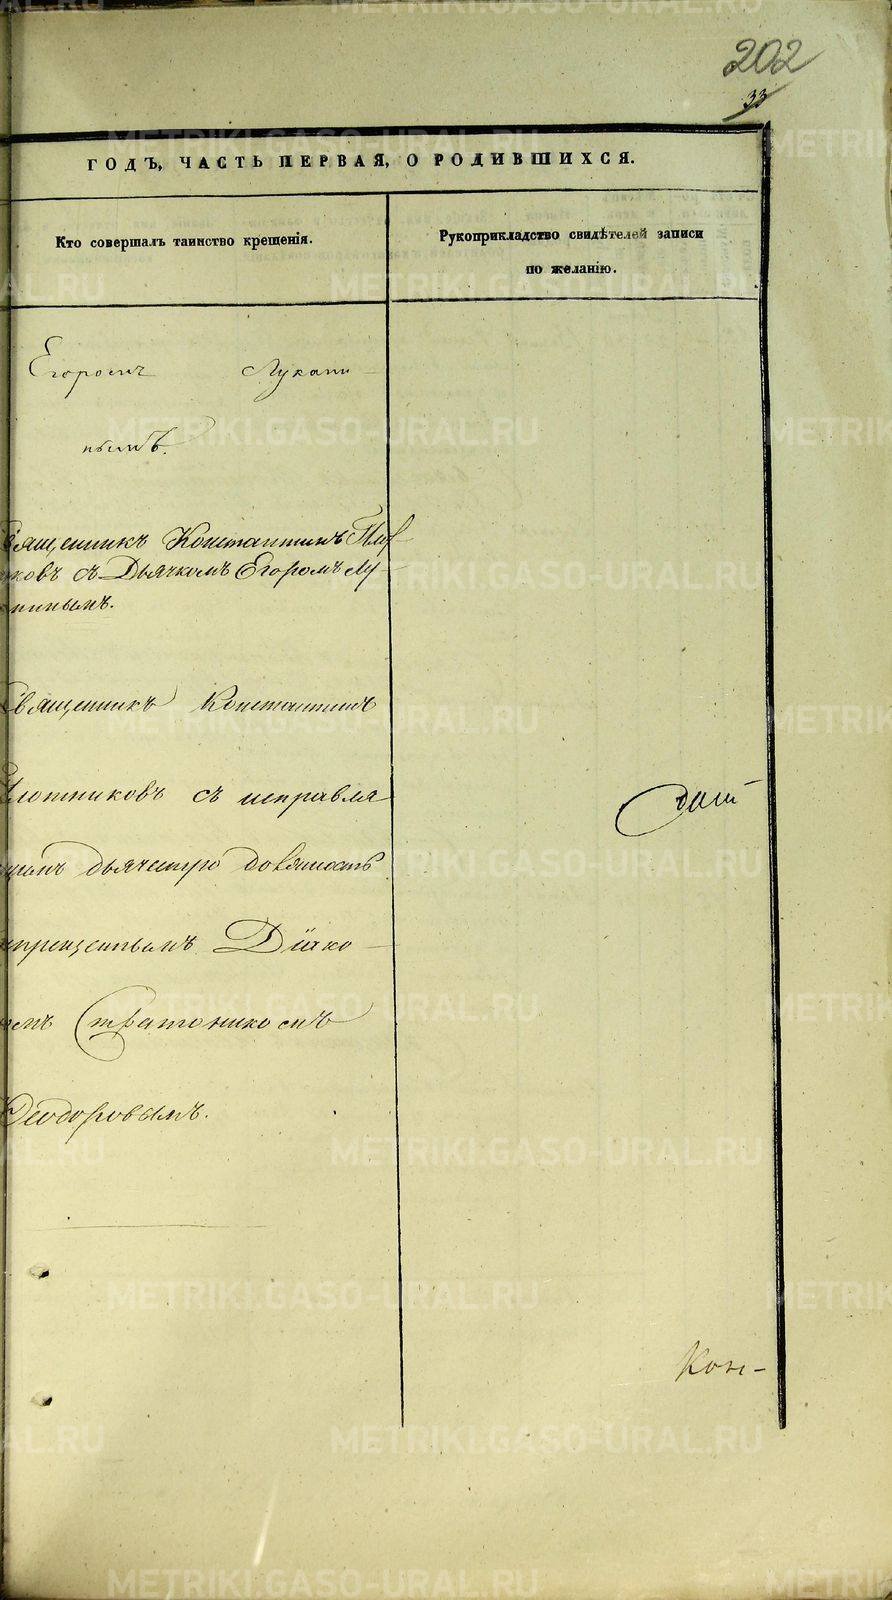 202
33
ГОДЪ, ЧАСТЬ ПЕРВАЯ, О РОДИВШИХСЯ.
Кто совершалъ таинство крещенія.
Рукоприкладство свидѣтелей записи
по желанію.
Егоромъ Лукани-
нымъ.
Священникъ Константинъ Плот
никовъ съ Дьячкомъ Егоромъ Лу-
канинымъ.
Священникъ Константинъ
Плотниковъ съ исправля
ющимъ дьяческую должность
запрещеннымъ Діако-
номъ Стратоникомъ
Ѳеодоровымъ.
Кон-
METRIKI.GASO-URAL.RU